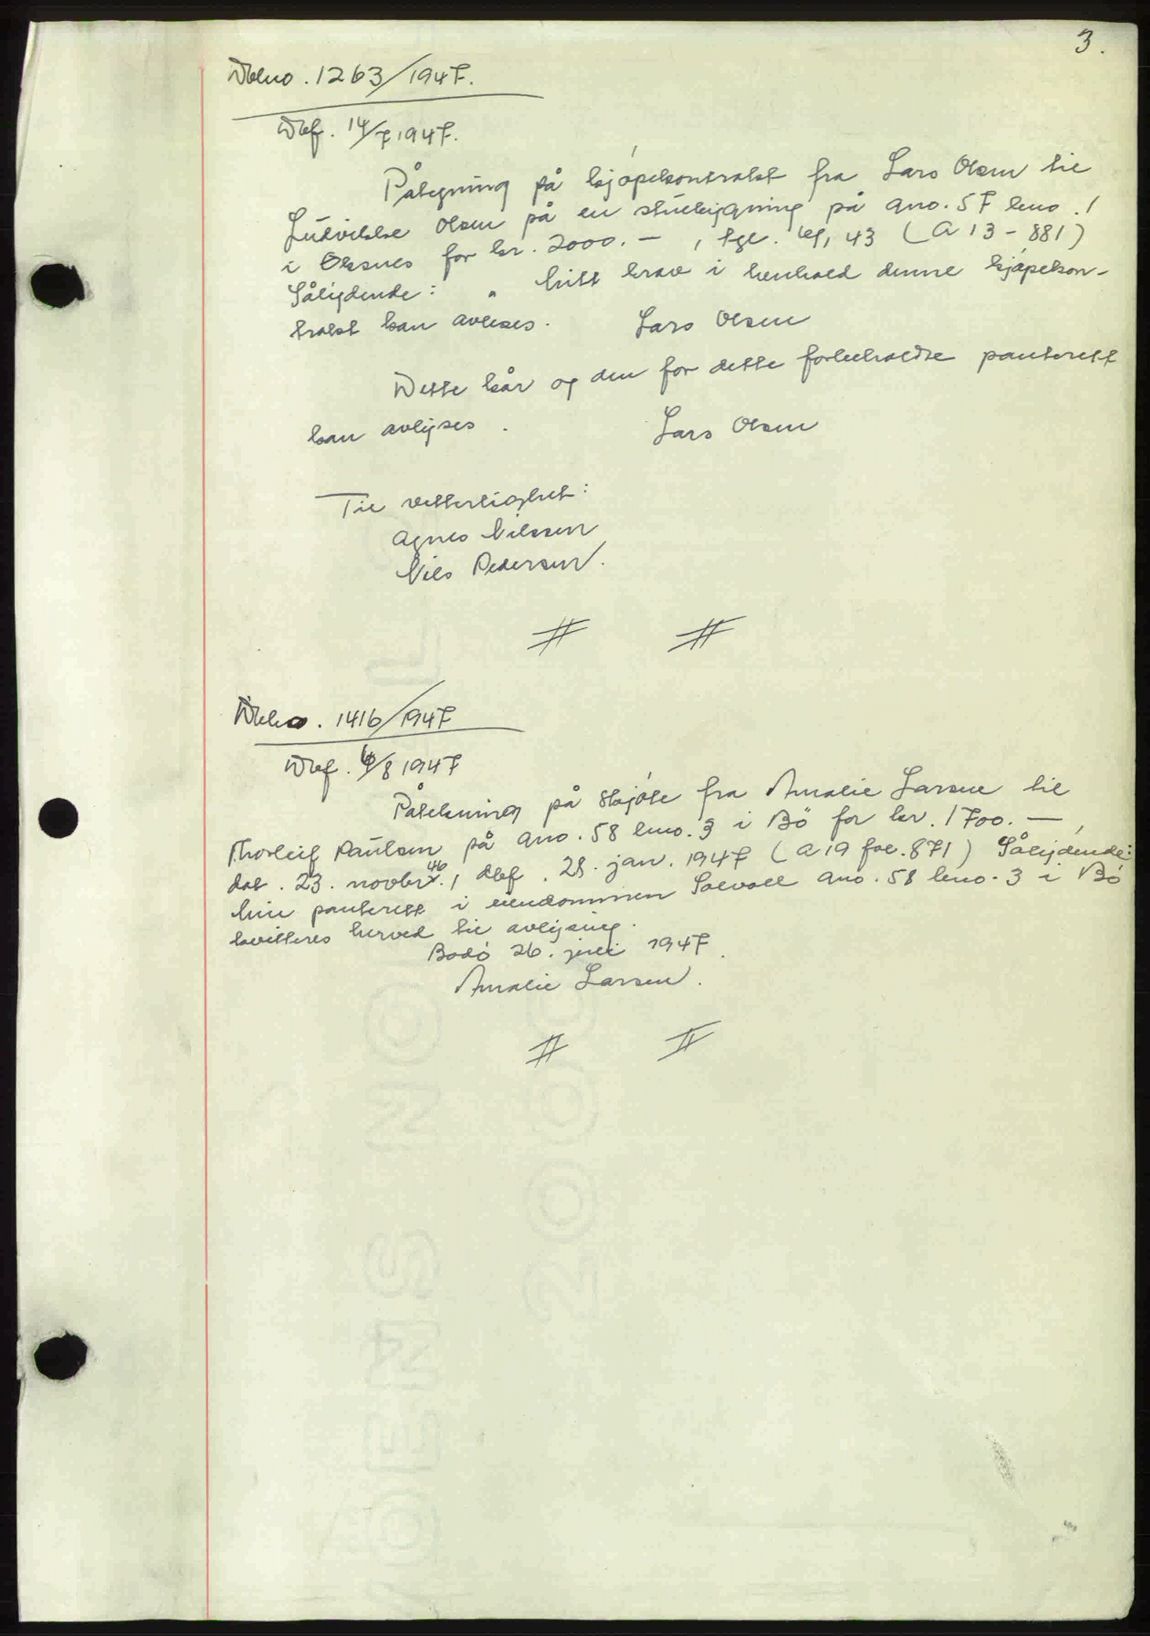 3.
Dbno. 1263/1947.
Dbf. 14/7 1947.
Påtegning på kjøpekontrakt fra Lars Olsen til
Ludvikke Olsen på en stuebygning på gno. 57 bno. 1
i Øksnes for kr. 2000.-, tgl. 43 (A 13-881)
Sålydende: " Mitt krav i henhold denne kjøpekon-
trakt kan avleses. Lars Olsen
Dette kår og den for dette forbeholdte panterett
kan avlyses. Lars Olsen
Til vitterlighet:
Agnes Nilssen
Nils Pedersen.
# #
Dbno. 1416/1947
Dbf. 6/8 1947
Påtekning på skjøte fra Amalie Larsen til
Thorleif Paulsen på gno. 58 bno. 3 i Bö for kr. 1700.-,
dat. 23. novbr. 46, dbf. 28. jan. 1947 (A 19 fol. 871) Sålydende:
Min panterett i eiendommen Solvoll gno. 58 bno. 3 i Bö
kvitteres herved til avlysing.
Bodö 26. juli 1947.
Amalie Larsen.
# #